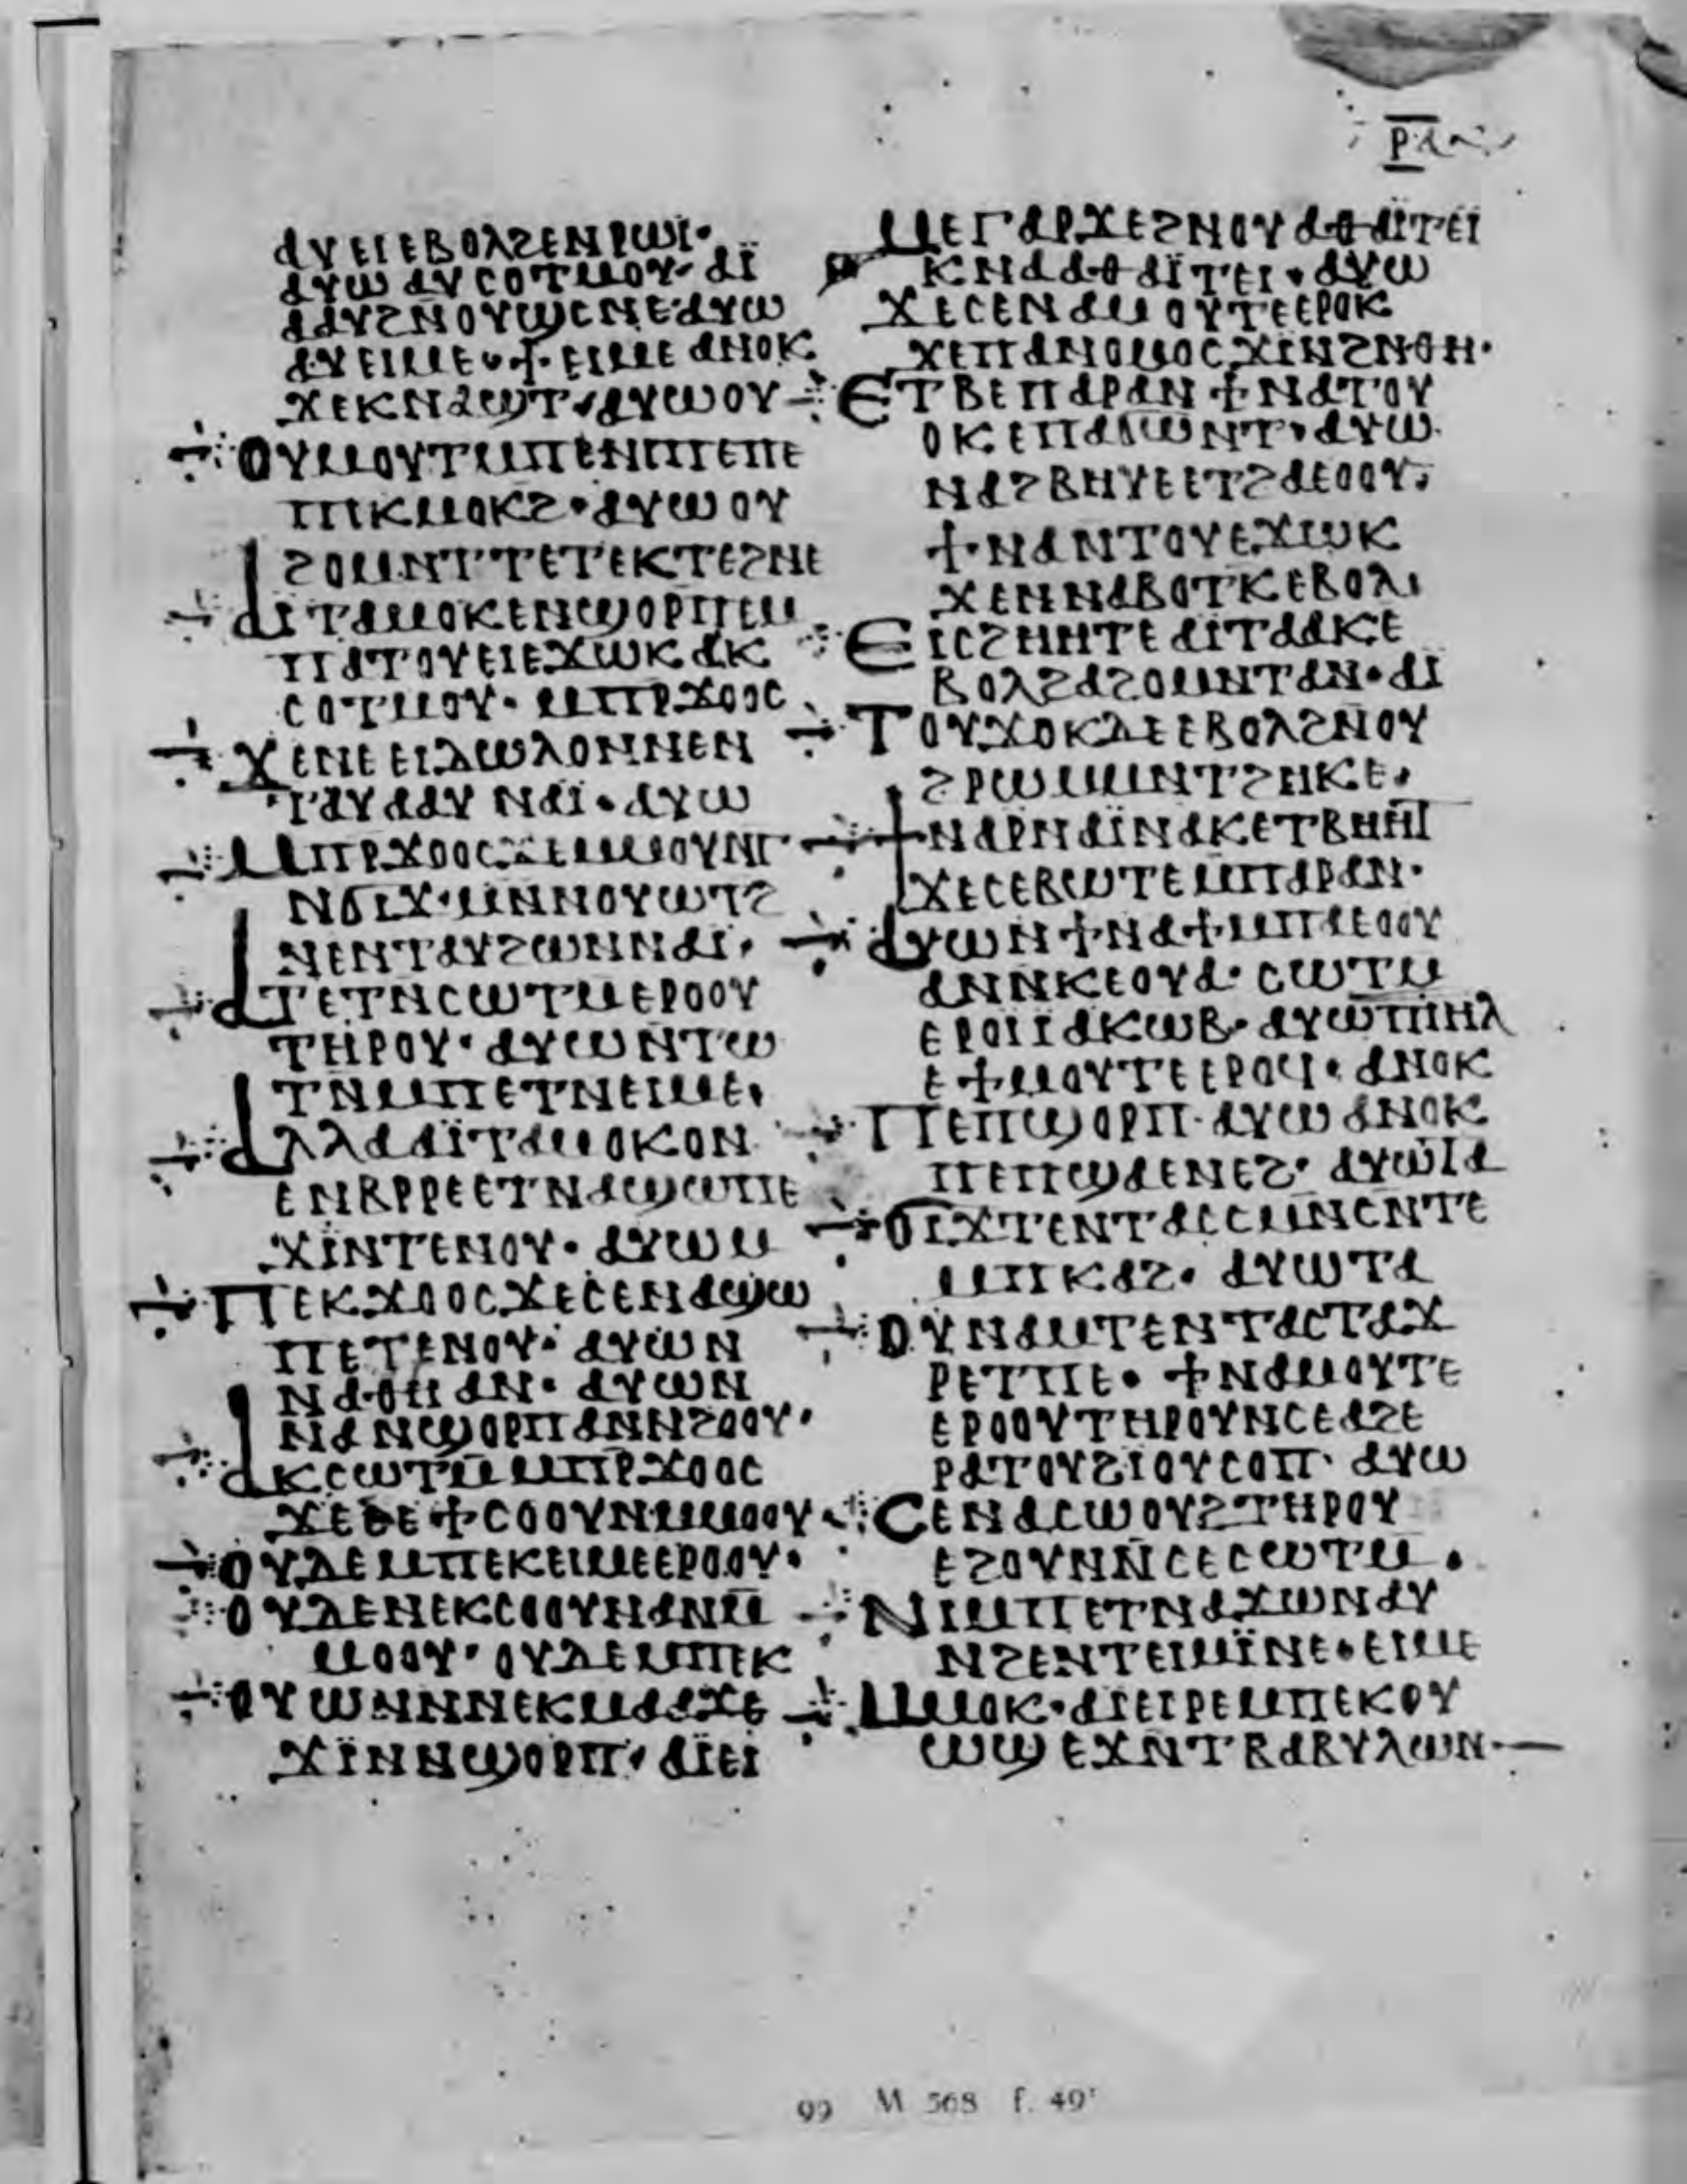 ⲣⲁ
ⲁⲩⲉⲓⲉⲃⲟⲗϩⲉⲛⲣⲱⲓ·
ⲁⲩⲱ ⲁⲩⲥⲟⲧⲙⲟⲩ· ⲁⲓ̈
ⲁⲁⲩϩⲛⲟⲩϣⲥⲛⲉ·ⲁⲩⲱ
ⲁⲩⲉⲓⲙⲉ·ϯⲉⲓⲙⲉ ⲁⲛⲟⲕ
ϫⲉⲕⲛⲁϣⲧ·ⲁⲩⲱⲟⲩ
ⲟⲩⲙⲟⲩⲧⲙⲡⲉⲛⲓⲡⲉⲡⲉ
ⲡⲉⲕⲙⲟⲕϩ·ⲁⲩⲱ ⲟⲩ
ϩⲟⲙⲛⲧⲧⲉⲧⲉⲕⲧⲉϩⲛⲉ
ⲁⲓ̈ⲧⲁⲙⲟⲕⲉⲛϣⲟⲣⲡⲉⲙ
ⲡⲁⲧⲟⲩⲉⲓⲉϫⲱⲕ ⲁⲕ
ⲥⲟⲧⲙⲟⲩ· ⲙⲡⲣϫⲟⲟⲥ
ϫⲉⲛⲉⲉⲓⲇⲱⲗⲟⲛⲛⲉⲛ
ⲧⲁⲩⲁⲁⲩ ⲛⲁⲓ̈·ⲁⲩⲱ
ⲙⲡⲣϫⲟⲟⲥϫⲉⲙⲙⲟⲩⲛⲅ
ⲛϭⲓϫ·ⲙⲛⲛⲟⲩⲱⲧϩ
ⲛⲉⲛⲧⲁⲩϩⲱⲛⲛⲁⲓ·
ⲁⲧⲉⲧⲛⲥⲱⲧⲙⲉⲣⲟⲟⲩ
ⲧⲏⲣⲟⲩ· ⲁⲩⲱⲛⲧⲱ
ⲧⲛⲙⲡⲉⲧⲛⲉⲓⲙⲉ·
ⲁⲗⲗⲁⲁⲓ̈ⲧⲁⲙⲟⲕⲟⲛ
ⲉⲛⲃⲣⲣⲉⲉⲧⲛⲁϣⲱⲡⲉ
ϫⲓⲛⲧⲉⲛⲟⲩ· ⲁⲩⲱⲙ
ⲡⲉⲕϫⲟⲟⲥϫⲉⲥⲉⲛⲁϣⲱ
ⲡⲉⲧⲉⲛⲟⲩ· ⲁⲩⲱⲛ
ⲛⲁⲑⲏ ⲁⲛ· ⲁⲩⲱⲛ
ⲛⲁⲛϣⲟⲣⲡⲁⲛⲛϩⲟⲟⲩ·
ⲁⲕⲥⲱⲧⲙⲙⲡⲣϫⲟⲟⲥ
ϫⲉϩⲉϯⲥⲟⲟⲩⲛⲙⲙⲟⲟⲩ
ⲟⲩⲇⲉⲙⲡⲉⲕⲉⲓⲙⲉⲉⲣⲟⲟⲩ·
ⲟⲩⲇⲉⲛⲉⲕⲥⲟⲟⲩⲛⲁⲛⲙ̅
ⲙⲟⲟⲩ· ⲟⲩⲇⲉⲙⲡⲉⲕ
ⲟⲩⲱⲛⲛⲛⲉⲕⲙⲁⲁϫⲉ
ϫⲓ̈ⲛⲛϣⲟⲣⲡ· ⲁⲓ̈ⲉⲓ
ⲙⲉⲅⲁⲣϫⲉϩⲛⲟⲩⲁⲑⲁⲓ̈ⲧⲉⲓ
ⲕⲛⲁⲁⲑⲁⲓ̈ⲧⲉⲓ·ⲁⲩⲱ
ϫⲉⲥⲉⲛⲁⲙⲟⲩⲧⲉⲉⲣⲟⲕ
ϫⲉⲡⲁⲛⲟⲙⲟⲥϫⲓⲛϩⲛⲑⲏ·
ⲉⲧⲃⲉⲡⲁⲣⲁⲛ ϯⲛⲁⲧⲟⲩ
ⲟⲕ ⲉⲡⲁϭⲱⲛⲧ·ⲁⲩⲱ
ⲛⲁϩⲃⲏⲩⲉⲉⲧϩⲁⲉⲟⲟⲩ·
ϯⲛⲁⲛⲧⲟⲩⲉϫⲱⲕ
ϫⲉⲛⲛⲁⲃⲟⲧⲕⲉⲃⲟⲗ·
ⲉⲓⲥϩⲏⲏⲧⲉ ⲁⲓⲧⲁⲁⲕⲉ
ⲃⲟⲗϩⲁϩⲟⲙⲛⲧⲁⲛ·ⲁⲓ̈
ⲧⲟⲩϫⲟⲕⲇⲉⲉⲃⲟⲗϩⲛⲟⲩ
ϩⲣⲱⲙⲙⲛⲧϩⲏⲕⲉ·
ϯⲛⲁⲣⲛⲁⲓ̈ⲛⲁⲕⲉⲧⲃⲏⲏⲧ
ϫⲉⲥⲉⲃⲱⲧⲉⲙⲡⲁⲣⲁⲛ·
ⲁⲩⲱⲛϯⲛⲁϯⲙⲡⲁⲉⲟⲟⲩ
ⲁⲛⲛⲕⲉⲟⲩⲁ· ⲥⲱⲧⲙ
ⲉⲣⲟⲓⲓⲁⲕⲱⲃ·ⲁⲩⲱⲡⲓⲏⲗ
ⲉϯⲙⲟⲩⲧⲉⲉⲣⲟϥ· ⲁⲛⲟⲕ
ⲡⲉⲡϣⲟⲣⲡ·ⲁⲩⲱ ⲁⲛⲟⲕ
ⲡⲉⲡϣⲁⲉⲛⲉϩ· ⲁⲩⲱⲧⲁ
ϭⲓϫⲧⲉⲛⲧⲁⲥⲥⲙⲛⲥⲛⲧⲉ
ⲙⲡⲕⲁϩ· ⲁⲩⲱⲧⲁ
ⲟⲩⲛⲁⲙⲧⲉⲛⲧⲁⲥⲧⲁϫ
ⲣⲉⲧⲡⲉ· ϯⲛⲁⲙⲟⲩⲧⲉ
ⲉⲣⲟⲟⲩⲧⲏⲣⲟⲩⲛⲥⲉⲁϩⲉ
ⲣⲁⲧⲟⲩϩⲓⲟⲩⲥⲟⲡ· ⲁⲩⲱ
ⲥⲉⲛⲁⲥⲱⲟⲩϩⲧⲏⲣⲟⲩ
ⲉϩⲟⲩⲛⲛⲥⲉⲥⲱⲧⲙ·
ⲛⲓⲙⲡⲉⲧⲛⲁϫⲱⲛⲁⲩ
ⲛϩⲉⲛⲧⲉⲓⲙⲓ̈ⲛⲉ·ⲉⲓⲙⲉ
ⲙⲙⲟⲕ·ⲁⲓⲉⲓⲣⲉⲙⲡⲉⲕⲟⲩ
ⲱϣ ⲉϫⲛⲧⲃⲁⲃⲩⲗⲱⲛ·
99 M 568 f. 49ʳ